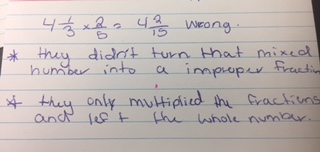 4 1/3 × 2/5 = 4 2/15 wrong.
* they didn't turn that mixed
number into a improper fraction
* they only multiplied the fractions
and left the whole number.